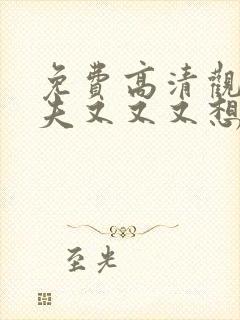 免费高清觀
夫又又又想
至光